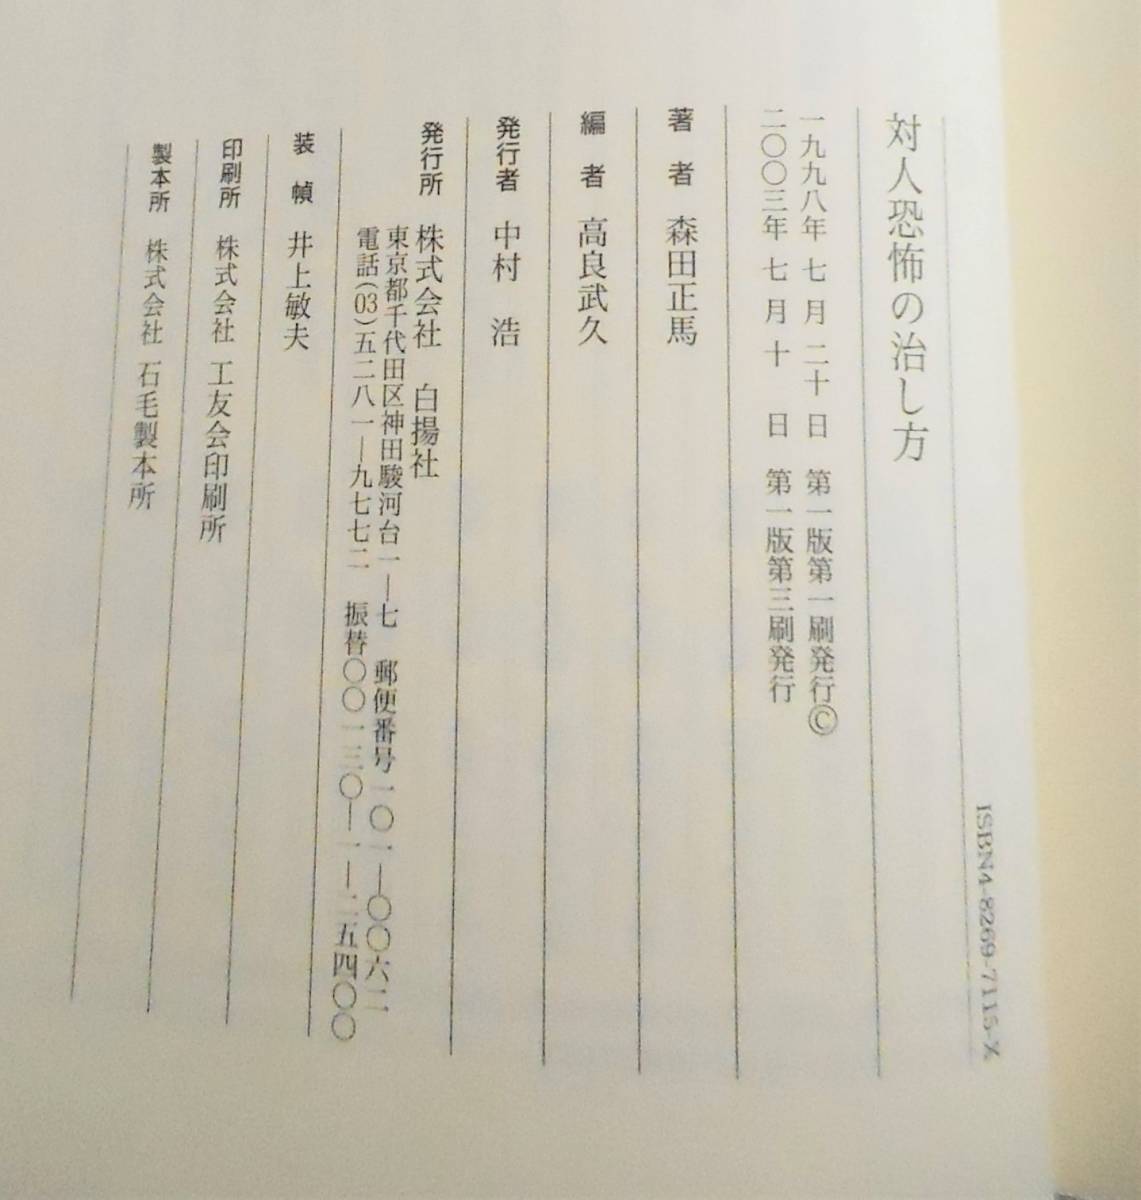 対人恐怖の治し方
一九九八年 七月 二十日 第一版第一刷発行©
二〇〇三年 七月 十 日 第一版第三刷発行
著 者 森田正馬
編 者 高良武久
発行者 中村 浩
発行所 株式会社 白揚社
東京都千代田区神田駿河台一―七 郵便番号一〇一―〇〇六二
電話(03)五二八一―九七七二 振替〇〇一三〇―一―二五四〇〇
装 幀 井上敏夫
印刷所 株式会社 工友会印刷所
製本所 株式会社 石毛製本所
ISBN4-8269-7115-X